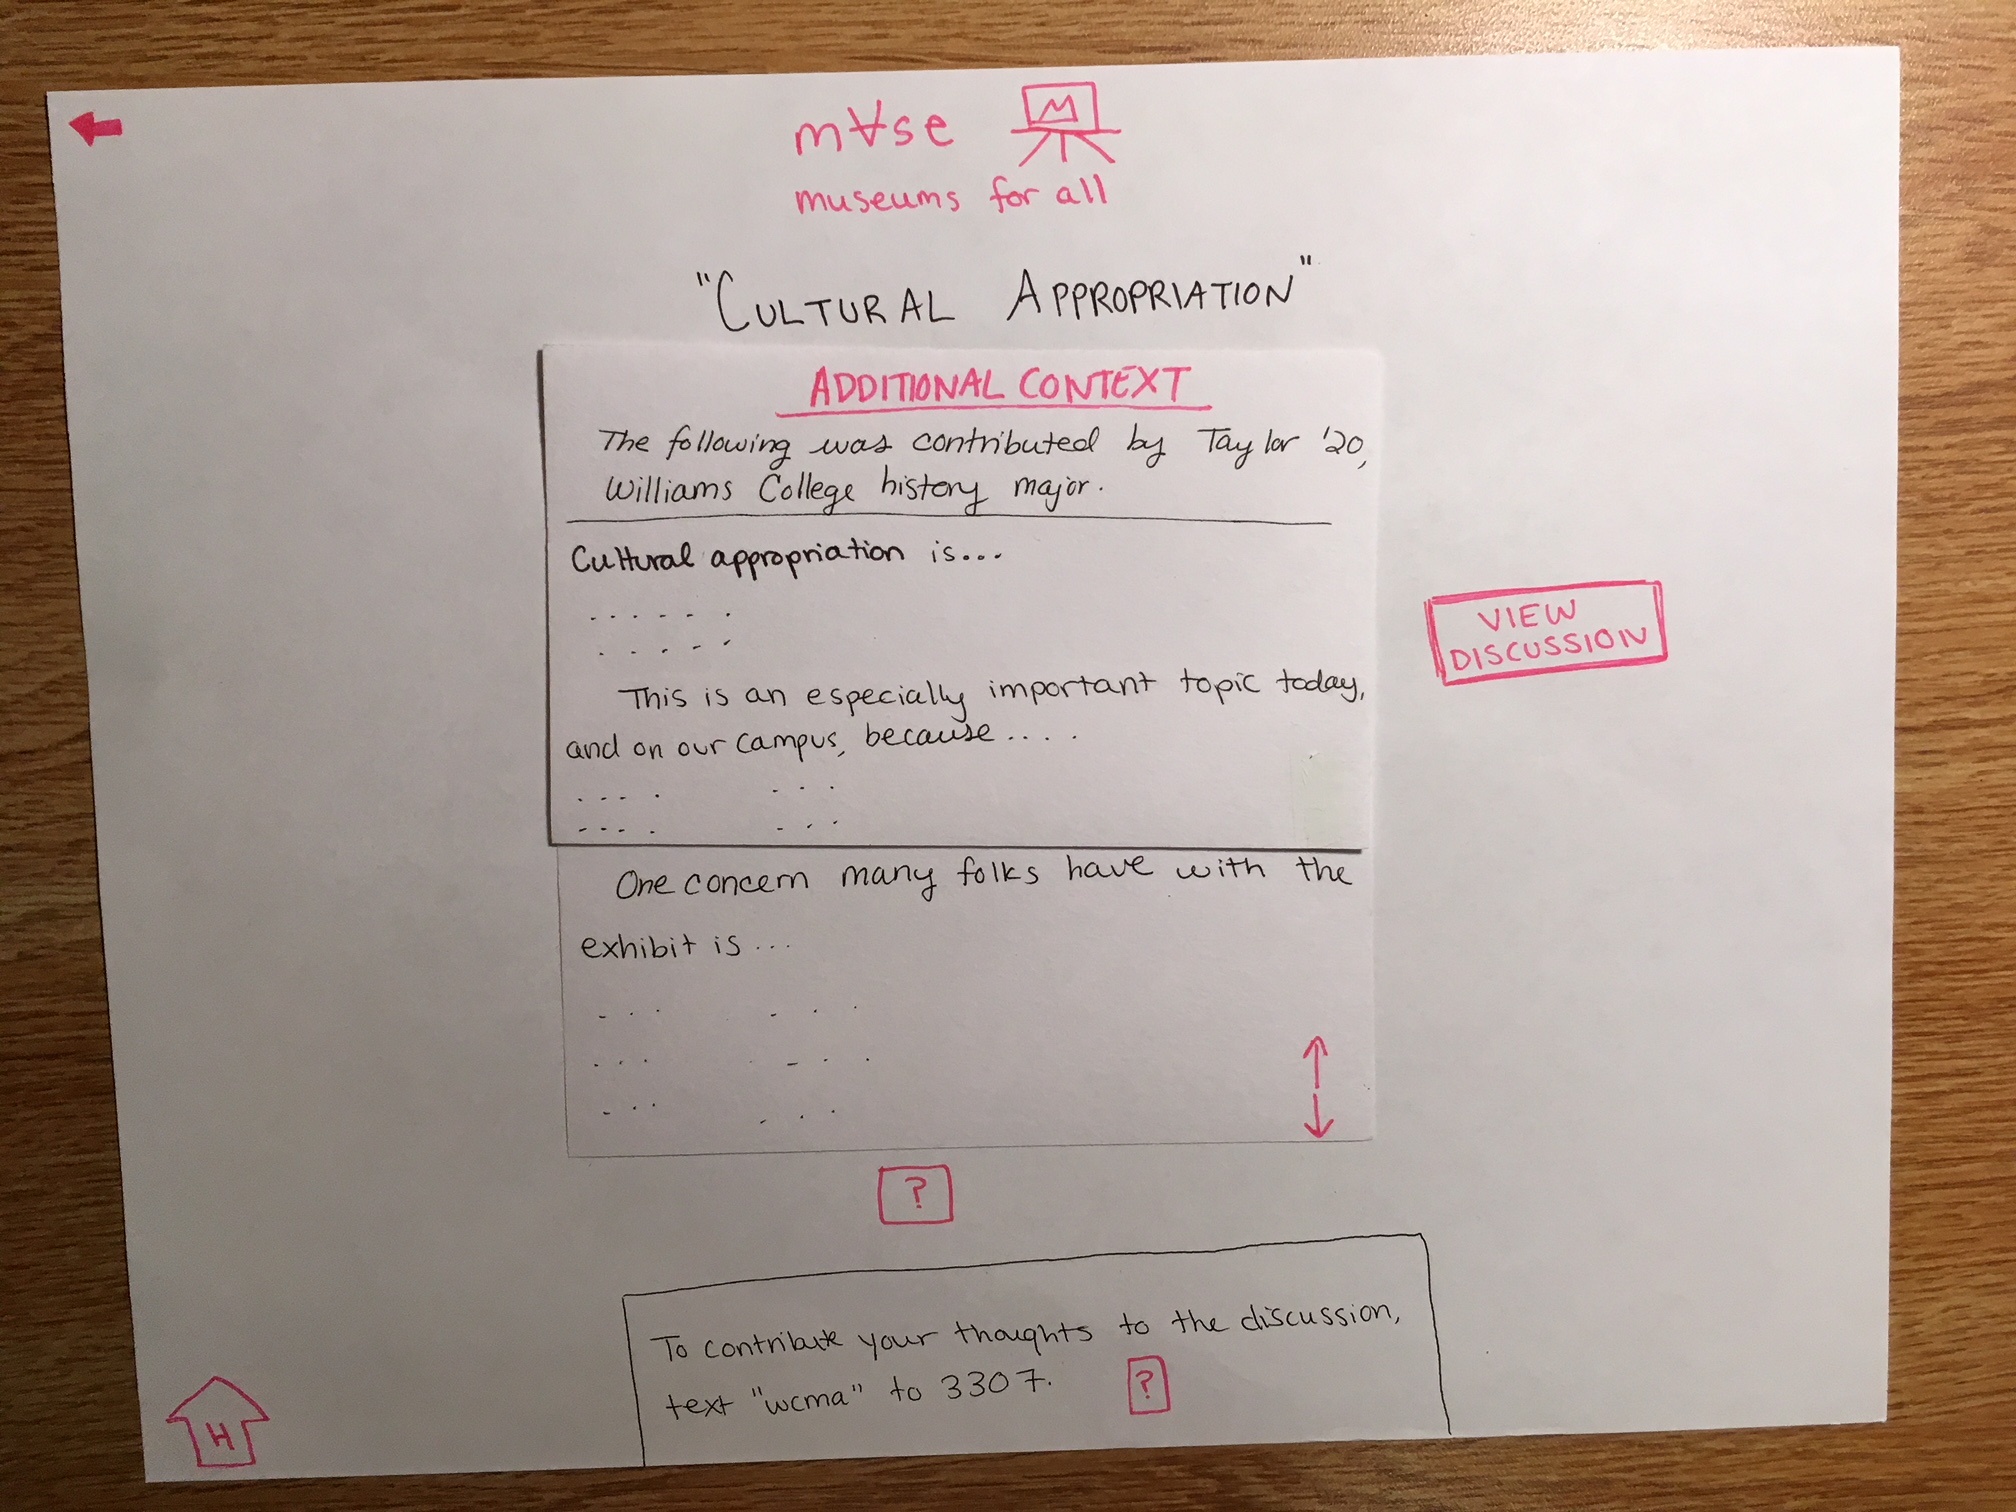 m∀se M
museums for all
"CULTURAL APPROPRIATION"
ADDITIONAL CONTEXT
The following was contributed by Taylor '20,
Williams College history major.
Cultural appropriation is...
This is an especially important topic today,
and on our campus, because....
VIEW
DISCUSSION
One concern many folks have with the
exhibit is...
?
To contribute your thoughts to the discussion,
text "wcma" to 3307. ?
H